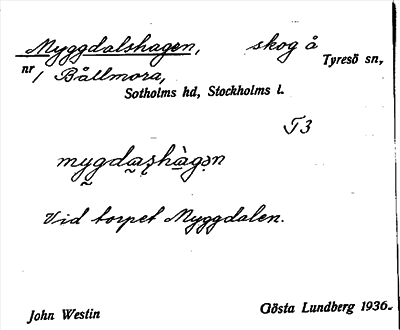 Myggdalshagen, skog å
Tyresö sn,
nr 1 Bållmora,
Sotholms hd, Stockholms l.
T3
mygdaʂhàgən
Vid torpet Myggdalen.
John Westin
Gösta Lundberg 1936.